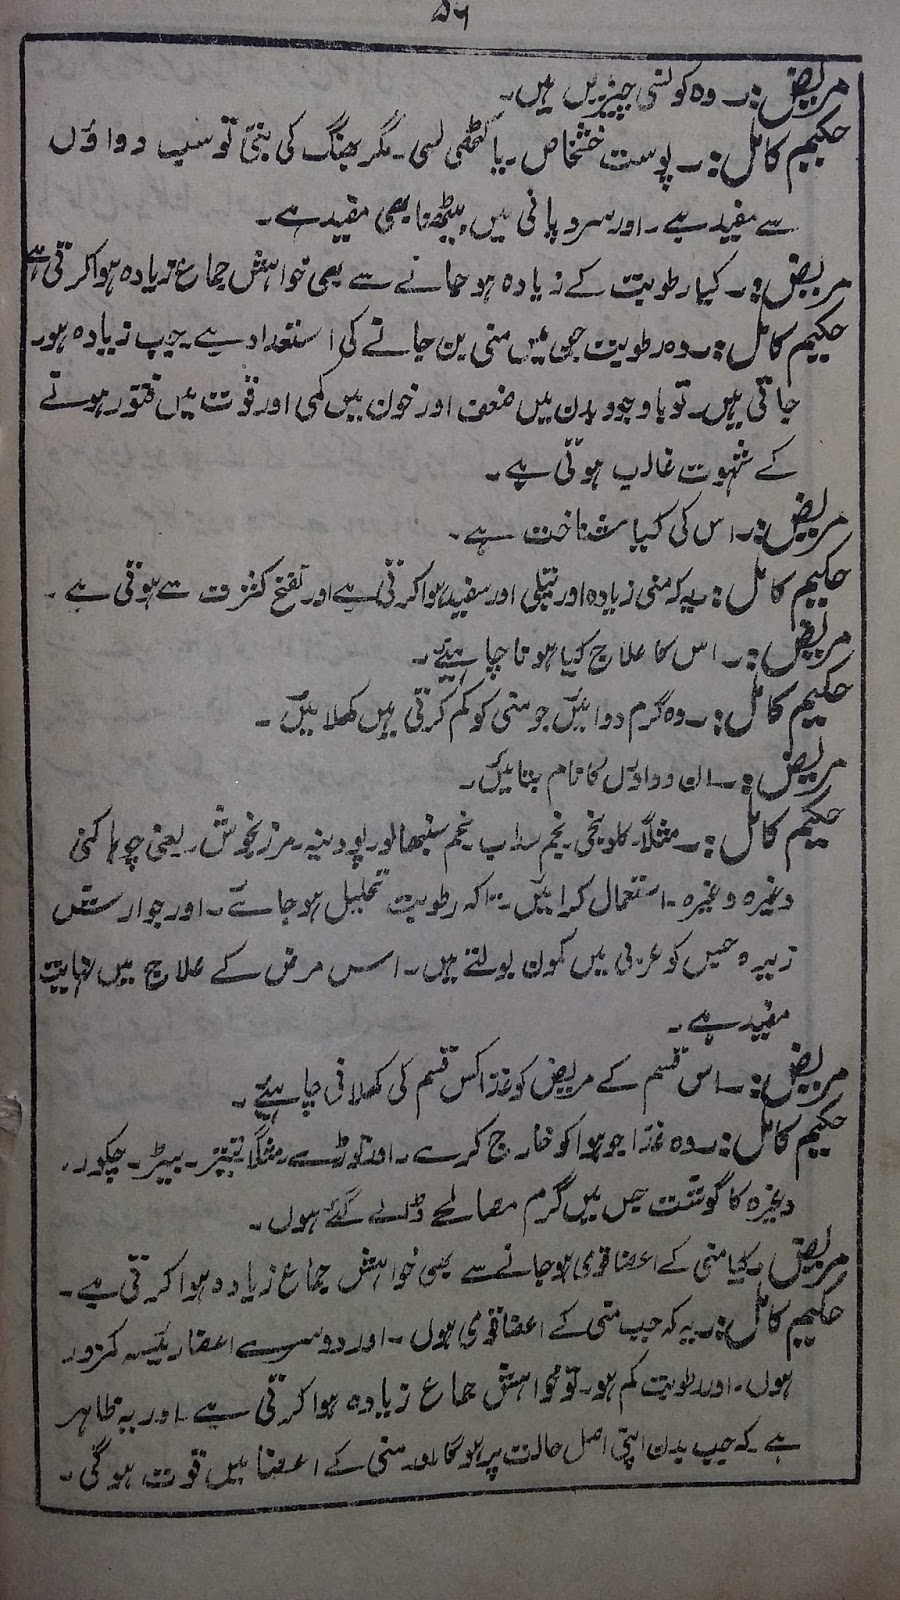 ۵۶
مریض:۔ وہ کونسی چیزیں ہیں۔
حکیم کامل:۔ پوست خشخاص۔ یا کھٹی لسی۔ مگر بھنگ کی بتی تو سب دواؤں
سے مفید ہے۔ اور سرد پانی میں بیٹھنا بھی مفید ہے۔
مریض:۔ کیا رطوبت کے زیادہ ہو جانے سے بھی خواہش جماع زیادہ ہوا کرتی ہے
حکیم کامل:۔ وہ رطوبت جن میں منی بن جانے کی استعداد ہے جب زیادہ ہو
جاتی ہیں۔ تو باوجود بدن میں ضعف اور خون میں کمی اور قوت میں فتور ہونے
کے شہوت غالب ہوتی ہے۔
مریض:۔ اس کی کیا شناخت ہے۔
حکیم کامل:۔ یہ کہ منی زیادہ اور پتلی اور سفید ہوا کرتی ہے اور نفخ کثرت سے ہوتی ہے۔
مریض:۔ اس کا علاج کیا ہونا چاہیئے۔
حکیم کامل:۔ وہ گرم دوائیں جو منی کو کم کرتی ہیں کھلائیں۔
مریض:۔ ان دواؤں کا نام بتائیں۔
حکیم کامل:۔ مثلاً۔ کلونجی۔ تخم سداب۔ تخم سنبھالو۔ پودینہ۔ مرزنجوش۔ یعنی چوہا کنی
وغیرہ وغیرہ۔ استعمال کرائیں۔ تاکہ رطوبت تحلیل ہو جائے۔ اور جوارش
زیرہ جس کو عربی میں کمون بولتے ہیں۔ اس مرض کے علاج میں نہایت
مفید ہے۔
مریض:۔ اس قسم کے مریض کو غذا کس قسم کی کھلانی چاہیئے۔
حکیم کامل:۔ وہ غذا جو ہوا کو خارج کرے۔ اور توڑے۔ مثلاً تیتر۔ بیٹر۔ چکور۔
وغیرہ کا گوشت جس میں گرم مصالحے ڈالے گئے ہوں۔
مریض۔ کیا منی کے اعضا قوی ہو جانے سے بھی خواہش جماع زیادہ ہوا کرتی ہے۔
حکیم کامل:۔ یہ کہ جب منی کے اعضا قوی ہوں۔ اور دوسرے اعضا رئیسہ کمزور
ہوں۔ اور رطوبت کم ہو۔ تو خواہش جماع زیادہ ہوا کرتی ہے۔ اور یہ ظاہر
ہے۔ کہ جب بدن اپنی اصل حالت پر ہو گا اور منی کے اعضا میں قوت ہو گی۔